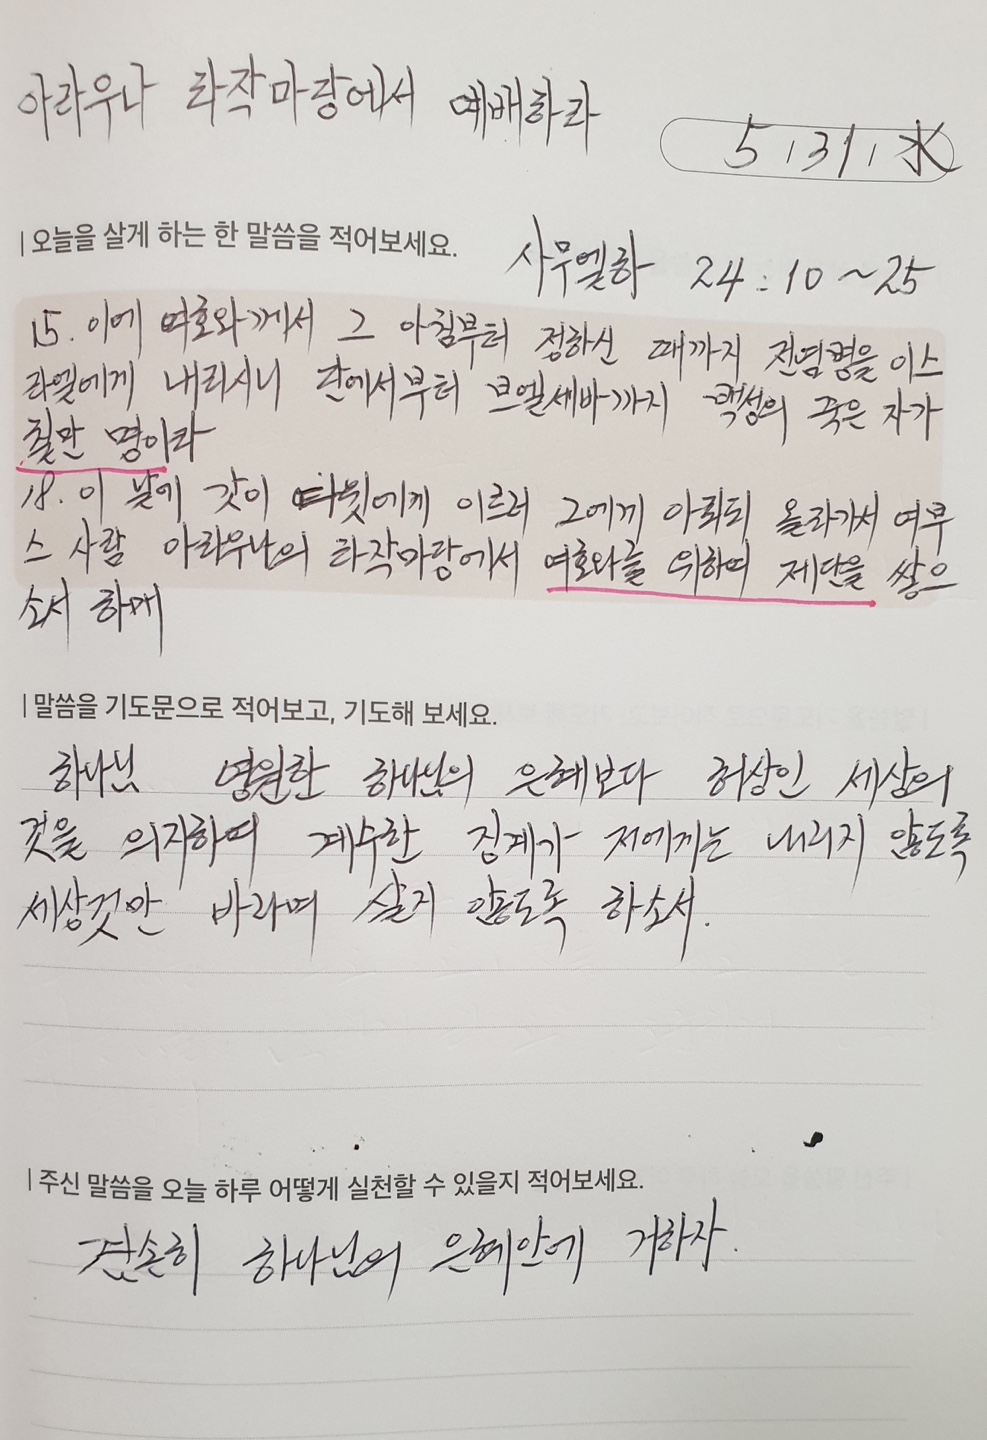 아라우나 타작마당에서 예배하라
5.31. 水
오늘을 살게 하는 한 말씀을 적어보세요.
사무엘하 24:10~25
15. 이에 여호와께서 그 아침부터 정하신 때까지 전염병을 이스
라엘에게 내리시니 단에서부터 브엘세바까지 백성의 죽은 자가
칠만 명이라
18. 이 날에 갓이 다윗에게 이르러 그에게 아뢰되 올라가서 여부
스 사람 아라우나의 타작마당에서 여호와를 위하여 제단을 쌓으
소서 하매
말씀을 기도문으로 적어보고, 기도해 보세요.
하나님 영원한 하나님의 은혜보다 허상인 세상의
것을 의지하여 계수한 징계가 저에게는 내리지 않도록
세상것만 바라며 살지 않도록 하소서.
주신 말씀을 오늘 하루 어떻게 실천할 수 있을지 적어보세요.
겸손히 하나님의 은혜안에 거하자.